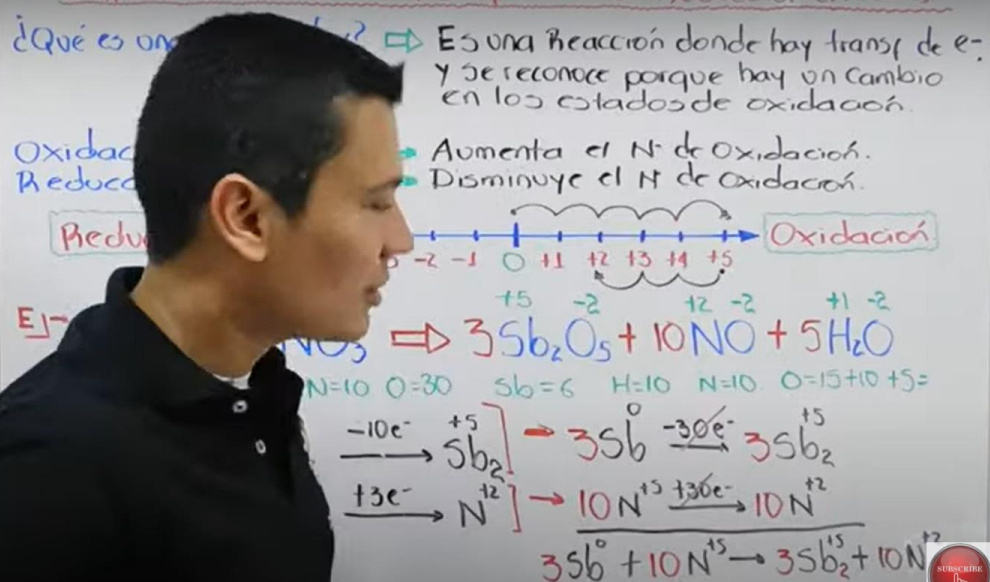 ¿Qué es un ? ⇨ Es una Reacción donde hay transf de e-.
y se reconoce porque hay un cambio
en los estados de oxidación.
Oxidac → Aumenta el N° de Oxidación.
Reducc → Disminuye el N° de oxidación.
Redu -2 -1 0 +1 +2 +3 +4 +5 Oxidación
+5 -2 +2 -2 +1 -2
Ej- NO₃ ⇨ 3Sb₂O₅ + 10NO + 5H₂O
N=10 O=30 Sb=6 H=10 N=10 O=15+10+5=
-10e⁻ → Sb₂⁺⁵ ] → 3Sb⁰ -30e⁻ → 3Sb₂⁺⁵
+3e⁻ → N⁺² ] → 10N⁺⁵ +30e⁻ → 10N⁺²
3Sb⁰ + 10N⁺⁵ → 3Sb₂⁺⁵ + 10N⁺²
SUBSCRIBE